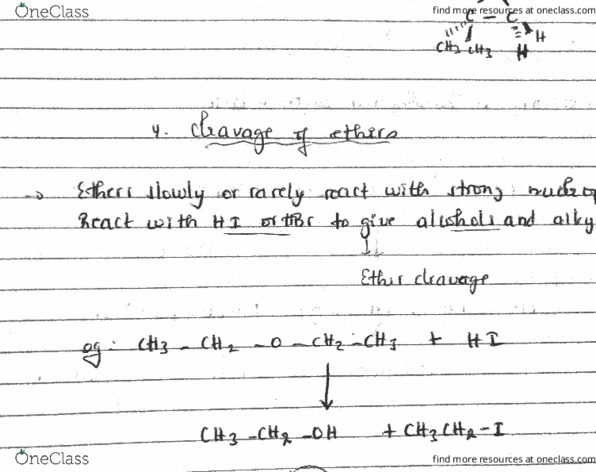 OneClass
find more resources at oneclass.com
C - C
H
CH2 CH3 H
4. Cleavage of ethers
→ Ethers slowly or rarely react with strong
React with HI or HBr to give alcohols and alky
↓
Ether cleavage
eg: CH3 - CH2 - O - CH2 - CH3 + HI
↓
CH3 - CH2 - OH + CH3CH2 - I
OneClass
find more resources at oneclass.com